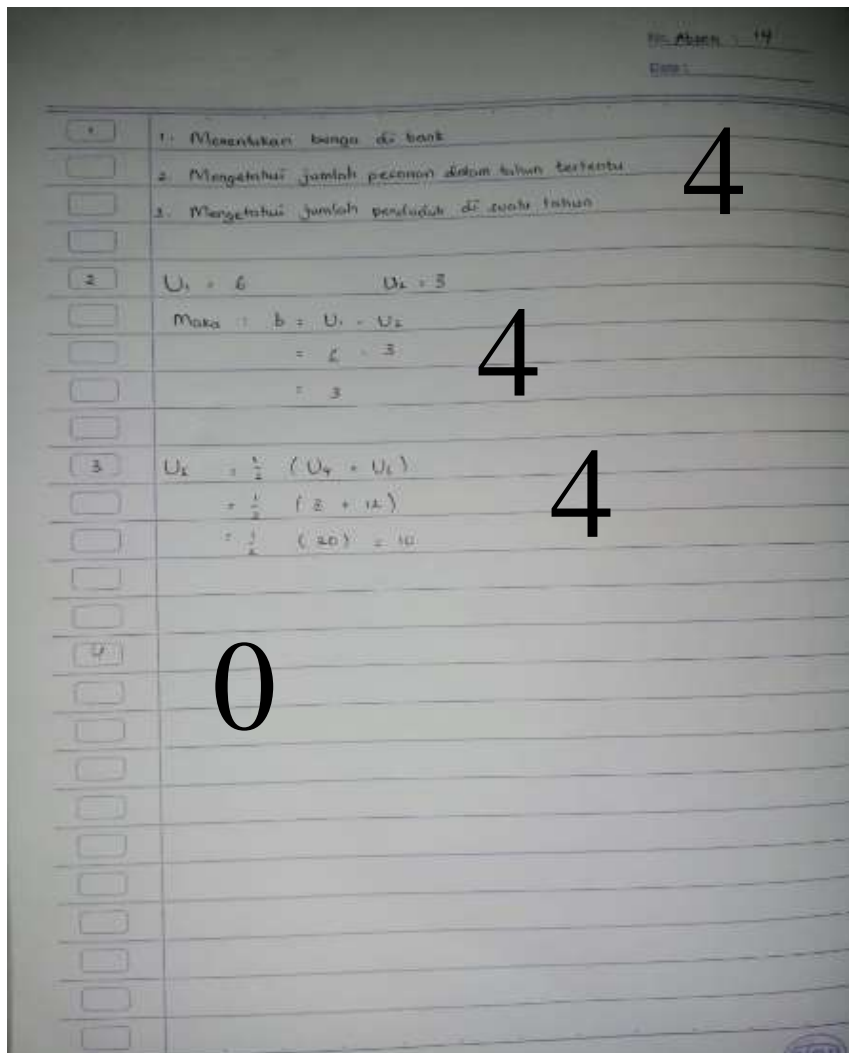 No. Absen : 14
Date :
1 1. Menentukan bunga di bank 4
2. Mengetahui jumlah pesanan dalam tahun tertentu
3. Mengetahui jumlah penduduk di suatu tahun
2 U₁ = 6 U₂ = 3
Maka : b = U₁ - U₂ 4
= 6 - 3
= 3
3 = 1/2 (U₄ + U₆) 4
= 1/2 (8 + 12)
= 1/2 (20) = 10
4 0